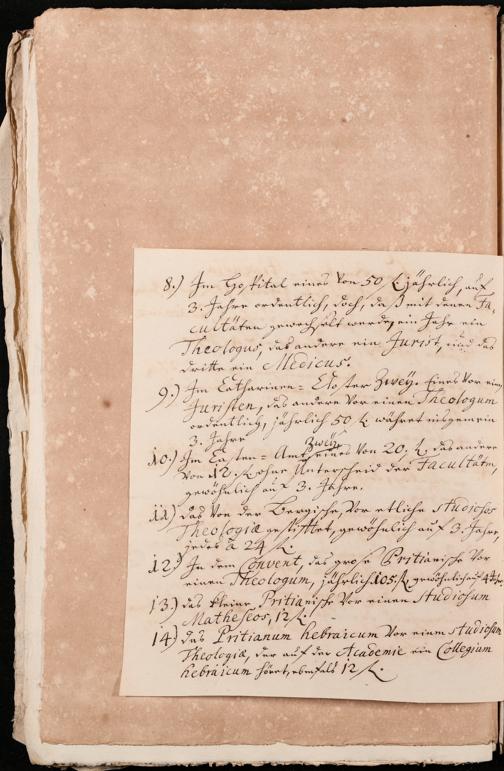 8.) Im Hospital eines von 50 R jährlich, auf
3. Jahre ordentlich, doch, daß mit denen Fa-
cultäten gewechselt werde, ein Jahr ein
Theologus, das andere ein Jurist, und das
dritte ein Medicus.
9.) Im Catharinen-Closter zwey. Eines vor ein
Juristen, das andere vor einen Theologum
ordentlich, jährlich 50 R währet insgemein
3. Jahre
10.) Im Casten-Amt zwey eines von 20, R. das andere
von 12. R ohne Unterscheid der Facultäten,
gewöhnlich auf 3. Jahre.
11) das von der Bergische, vor etliche studiosos
Theologiæ gestifftet, gewöhnlich auf 3. Jahre,
jedes à 24 R.
12.) In dem Convent, das große Pritianische vor
einen Theologum, jährlich 105 R, gewöhnlich auf
13.) das kleine Pritianische vor einen Studiosum
Matheseos, 12 R.
14) das Pritianum hebraicum vor einen studiosum
Theologiæ, der auf der Academie ein Collegium
hebraicum höret, ebenfals 12 R.